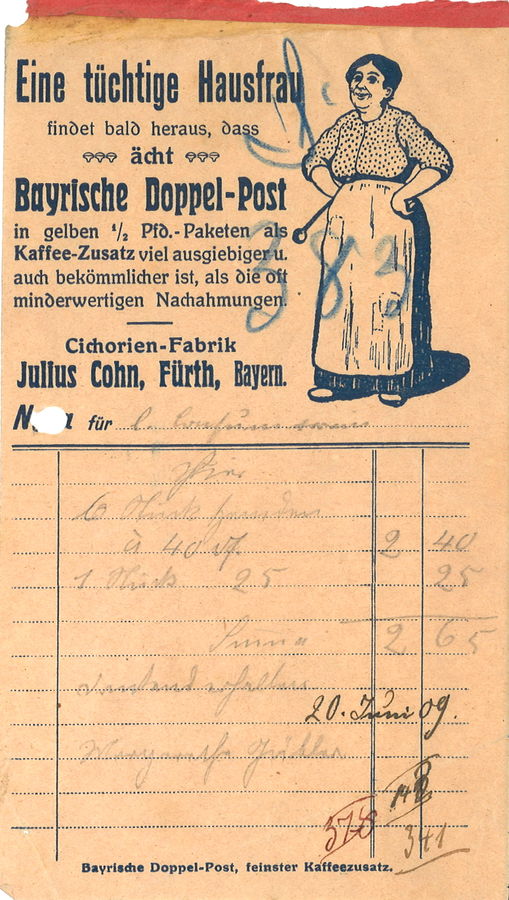 Eine tüchtige Hausfrau
findet bald heraus, dass
ächt
Bayrische Doppel-Post
in gelben ½ Pfd.-Paketen als
Kaffee-Zusatz viel ausgiebiger u.
auch bekömmlicher ist, als die oft
minderwertigen Nachahmungen.
383
Cichorien-Fabrik
Julius Cohn, Fürth, Bayern.
für
Hier
6 Stück
à 40 2 40
1 Stück 25 25
Summa 2 65
dankend erhalten
20. Juni 09.
Margarethe
378
341
Bayrische Doppel-Post, feinster Kaffeezusatz.